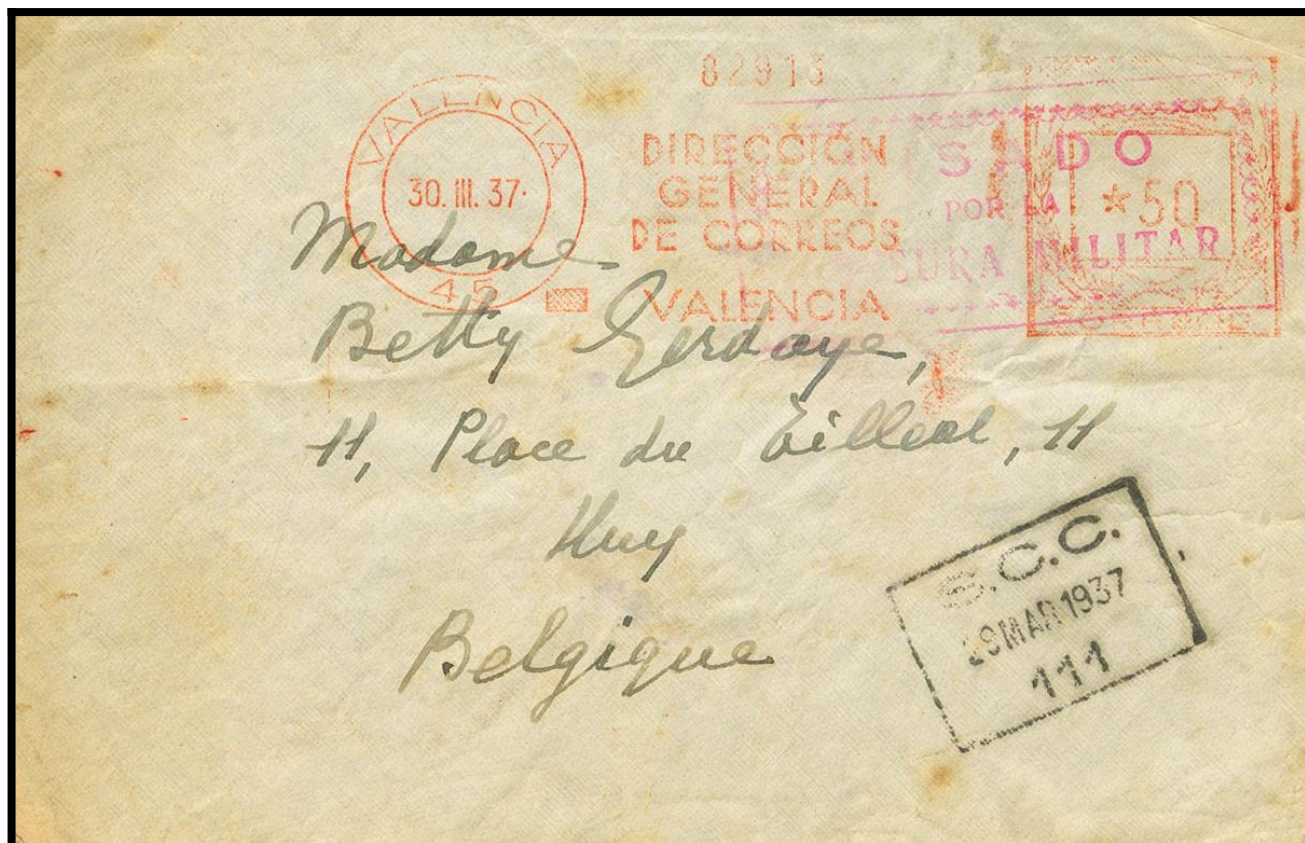 82913
VALENCIA
30. III. 37.
45
DIRECCIÓN
GENERAL
DE CORREOS
VALENCIA
SADO
POR LA
URA MILITAR
*50
Madame
Betty Gerdaye,
11, Place du Tilleul, 11
Huy
Belgique
S.C.C.
29 MAR 1937
111